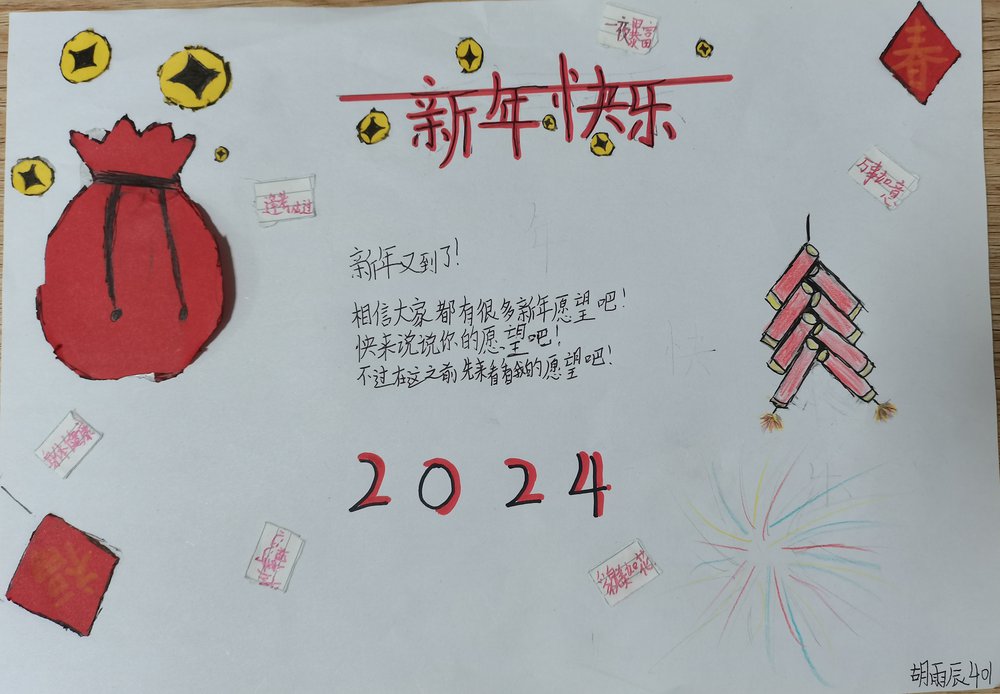 一夜暴富
春
新年快乐
万事如意
逢考必过
新年又到了！
相信大家都有很多新年愿望吧！
快来说说你的愿望吧！
不过在这之前先来看看我的愿望吧！
身体健康
2024
福
貌美如花
胡雨辰401